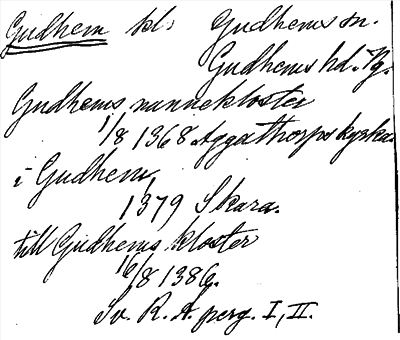 Gudhem kl: Gudhems sn.
Gudhems hd. Vg.
Gudhems nunnekloster
1/8 1368 Aggathorps kyrka
i Gudhem,
1379 Skara.
till Gudhems kloster
16/8 1386.
Sv. R. A. perg. I, II.